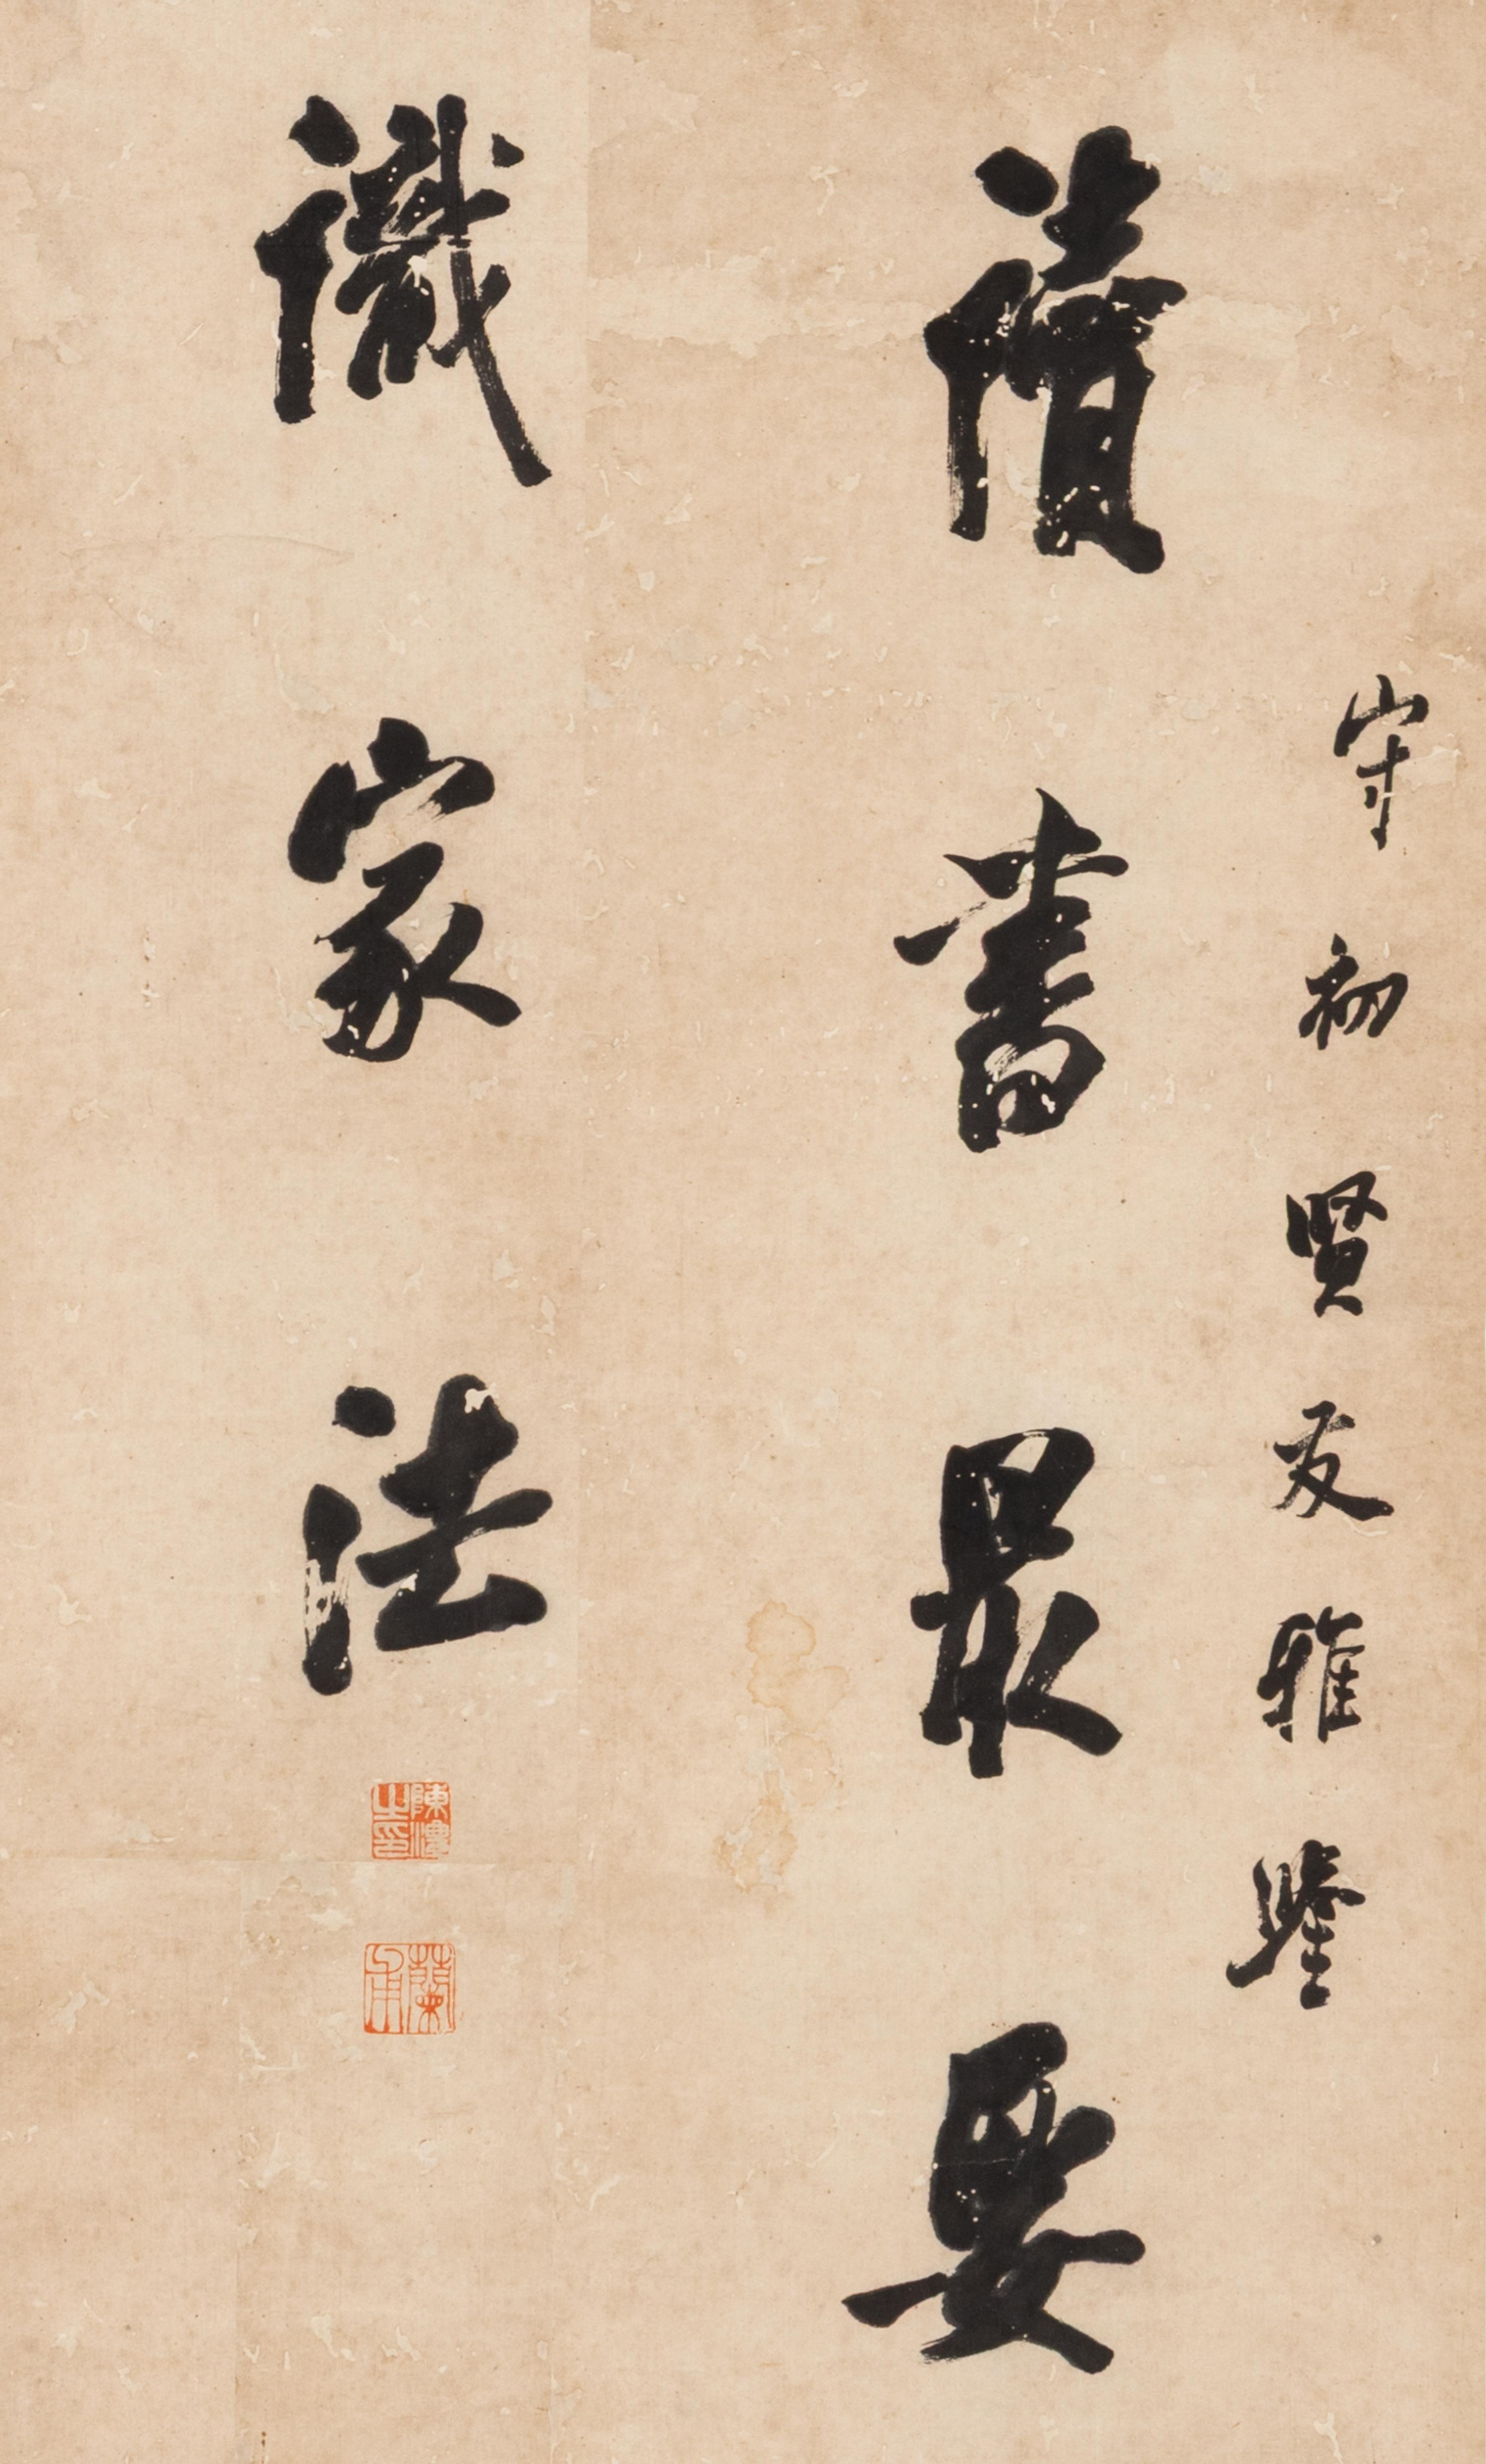 守初賢友雅鑒
讀書最要
識家法
陳澧之印
蘭甫